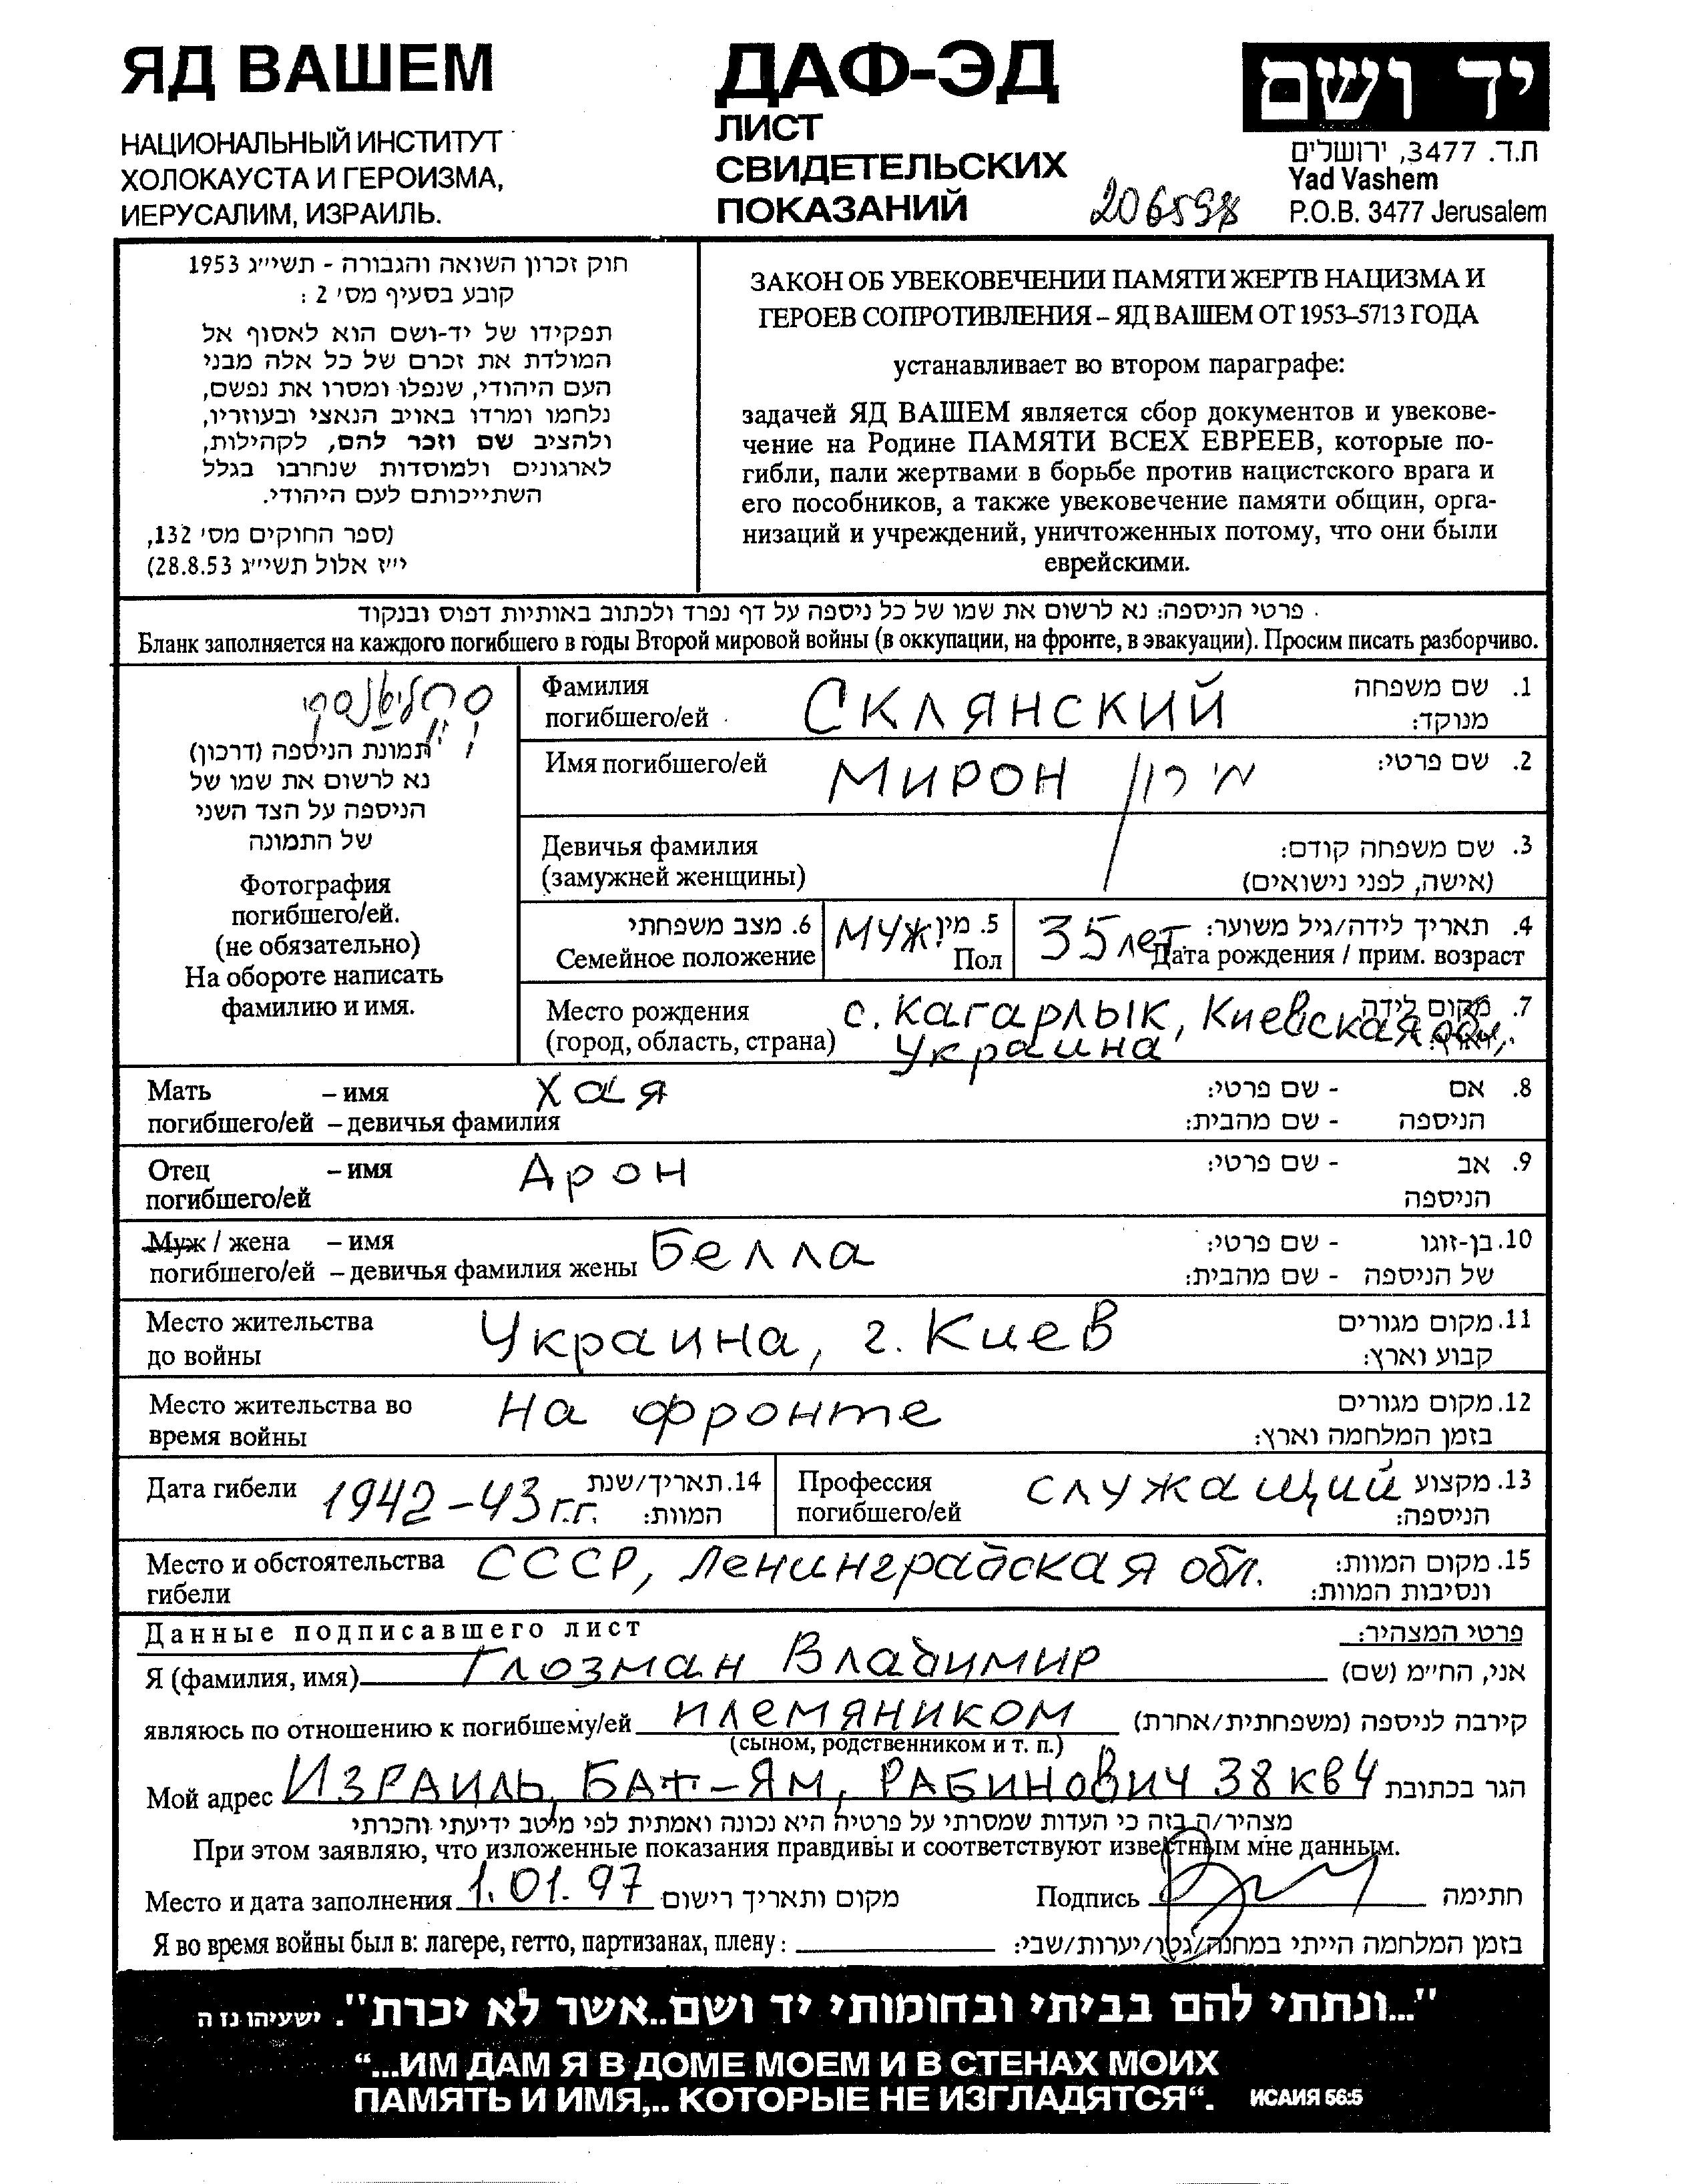 ЯД ВАШЕМ
НАЦИОНАЛЬНЫЙ ИНСТИТУТ
ХОЛОКАУСТА И ГЕРОИЗМА,
ИЕРУСАЛИМ, ИЗРАИЛЬ.
ДАФ-ЭД
ЛИСТ
СВИДЕТЕЛЬСКИХ
ПОКАЗАНИЙ
206598
יד ושם
ת.ד. 3477, ירושלים
Yad Vashem
P.O.B. 3477 Jerusalem
חוק זכרון השואה והגבורה - תשי״ג 1953
קובע בסעיף מס׳ 2 :
תפקידו של יד-ושם הוא לאסוף אל
המולדת את זכרם של כל אלה מבני
העם היהודי, שנפלו ומסרו את נפשם,
נלחמו ומרדו באויב הנאצי ובעוזריו,
ולהציב שם וזכר להם, לקהילות,
לארגונים ולמוסדות שנחרבו בגלל
השתייכותם לעם היהודי.
(ספר החוקים מס׳ 132,
י״ז אלול תשי״ג 28.8.53)
ЗАКОН ОБ УВЕКОВЕЧЕНИИ ПАМЯТИ ЖЕРТВ НАЦИЗМА И
ГЕРОЕВ СОПРОТИВЛЕНИЯ – ЯД ВАШЕМ ОТ 1953–5713 ГОДА
устанавливает во втором параграфе:
задачей ЯД ВАШЕМ является сбор документов и увекове-
чение на Родине ПАМЯТИ ВСЕХ ЕВРЕЕВ, которые по-
гибли, пали жертвами в борьбе против нацистского врага и
его пособников, а также увековечение памяти общин, орга-
низаций и учреждений, уничтоженных потому, что они были
еврейскими.
פרטי הניספה: נא לרשום את שמו של כל ניספה על דף נפרד ולכתוב באותיות דפוס ובנקוד .
Бланк заполняется на каждого погибшего в годы Второй мировой войны (в оккупации, на фронте, в эвакуации). Просим писать разборчиво.
תמונת הניספה (דרכון)
נא לרשום את שמו של
הניספה על הצד השני
של התמונה
Фотография
погибшего/ей.
(не обязательно)
На обороте написать
фамилию и имя.
Фамилия
погибшего/ей
Склянский
1. שם משפחה
מנוקד:
Имя погибшего/ей
Мирон
מירון
2. שם פרטי:
Девичья фамилия
(замужней женщины)
3. שם משפחה קודם:
(אישה, לפני נישואים)
6. מצב משפחתי
Семейное положение
муж.
5. מין
Пол
35 лет
4. תאריך לידה/גיל משוער:
Дата рождения / прим. возраст
Место рождения
(город, область, страна)
с. Кагарлык, Киевская обл,
Украина
7. מקום לידה
וארץ:
Мать – имя Хая
погибшего/ей – девичья фамилия
8. אם - שם פרטי:
הניספה - שם מהבית:
Отец – имя Арон
погибшего/ей
9. אב - שם פרטי:
הניספה
Муж / жена – имя Белла
погибшего/ей – девичья фамилия жены
10. בן-זוגו - שם פרטי:
של הניספה - שם מהבית:
Место жительства
до войны
Украина, г. Киев
11. מקום מגורים
קבוע וארץ:
Место жительства во
время войны
На фронте
12. מקום מגורים
בזמן המלחמה וארץ:
Дата гибели 1942-43 г.г.
14. תאריך/שנת
המוות:
Профессия
погибшего/ей
служащий
13. מקצוע
הניספה:
Место и обстоятельства
гибели
СССР, Ленинградская обл.
15. מקום המוות:
ונסיבות המוות:
Данные подписавшего лист
פרטי המצהיר:
Я (фамилия, имя) Глозман Владимир אני, הח״מ (שם)
являюсь по отношению к погибшему/ей племяником קירבה לניספה (משפחתית/אחרת)
(сыном, родственником и т. п.)
Мой адрес ИЗРАИЛЬ, БАТ-ЯМ, РАБИНОВИЧ 38 кв 4 הגר בכתובת
מצהיר/ה בזה כי העדות שמסרתי על פרטיה היא נכונה ואמתית לפי מיטב ידיעתי והכרתי
При этом заявляю, что изложенные показания правдивы и соответствуют известным мне данным.
Место и дата заполнения 1.01.97 מקום ותאריך רישום
Подпись חתימה
Я во время войны был в: лагере, гетто, партизанах, плену: בזמן המלחמה הייתי במחנה/גטו/יערות/שבי:
"...ונתתי להם בביתי ובחומותי יד ושם..אשר לא יכרת". ישעיהו נז ה
“...ИМ ДАМ Я В ДОМЕ МОЕМ И В СТЕНАХ МОИХ
ПАМЯТЬ И ИМЯ,.. КОТОРЫЕ НЕ ИЗГЛАДЯТСЯ“. ИСАИЯ 56:5